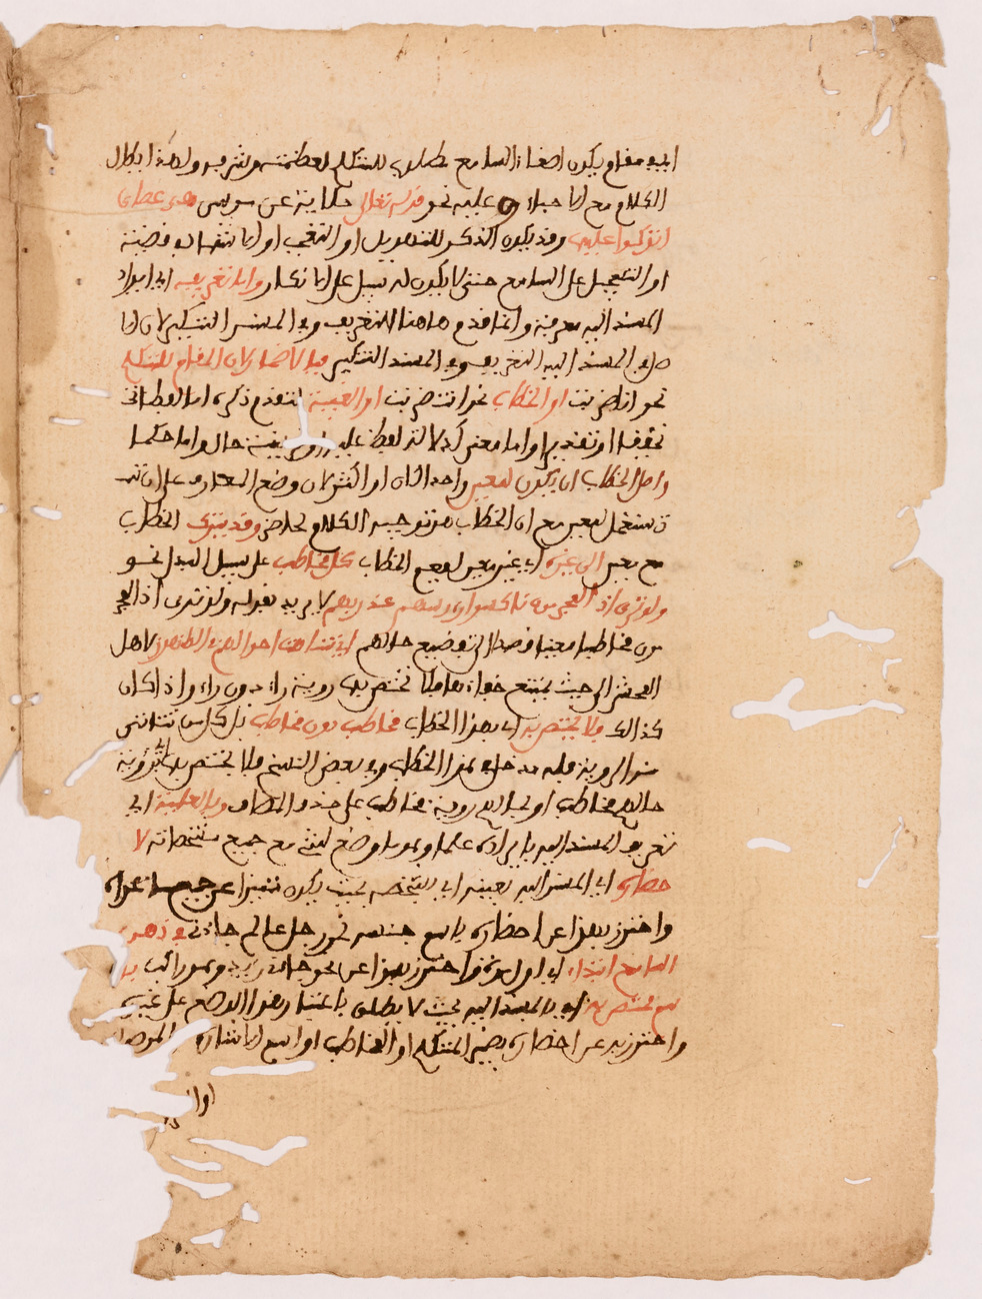 اي في مقام يكون اصغاء السامع مطلوبا للمتكلم لعظمته وشرفه ولهذا يطال
الكلام مع الاحباء و عليه نحو قوله تعالى حكاية عن موسى هي عصاي
اتوكوا عليها وقد يكون الذكر للتهويل او التعجب او الاشهاد في قضية
او التسجيل على السامع حتى لا يكون له سبيل على الانكار واما تعريفه اي ايراد
المسند اليه معرفة وانما قدم هاهنا التعريف وفي المسند التنكير لان الا
صل في المسند اليه التعريف وفي المسند التنكير فبالاضمار لان المقام للمتكلم
نحو انا ضربت او الخطاب نحو انت ضربت او الغيبة لتقدم ذكره اما لفظا
تحقيقا او تقديرا واما معنى لدلالة لفظ عليه او قرينة حال واما حكما
واصل الخطاب ان يكون لمعين واحدا كان او اكثر لان وضع المعارف على ان
تستعمل لمعين مع ان الخطاب هو توجيه الكلام لحاضر وقد يترك الخطاب
مع معين الى غيره اي غير معين ليعم الخطاب كل مخاطب على سبيل البدل نحو
ولو ترى اذ المجرمون ناكسوا رءوسهم عند ربهم لا يريد بقوله ولو ترى اذ المجر
مون مخاطبا معينا قصدا الى تفضيع حالهم اي تناهت احوالهم في الظهور لاهل
المحشر الى حيث يمتنع خفاءها فلا تختص بها روية راء دون راء واذا كان
كذالك فلا يختص به اي بهذا الخطاب مخاطب دون مخاطب بل كل من تتاتى
منه الروية فله مدخل في هذا الخطاب وفي بعض النسخ فلا يختص بها اي برؤية
حالهم مخاطب او بحالهم روية مخاطب على حذف المضاف وبالعلمية اي
تعريف المسند اليه بايراده علما وهو ما وضع لشيء مع جميع مشخصاته لا
حضاره اي المسند اليه بعينه اي بشخصه بحيث يكون متميزا عن جميع ما عداه
واحترز بهذا عن احضاره باسم جنسه نحو رجل عالم جاءني في ذهن
السامع ابتداء اي اول مرة واحترز بهذا عن نحو جاءني زيد وهو راكب با
سم مختص به اي بالمسند اليه بحيث لا يطلق باعتبار هذا الوضع على غيره
واحترز به عن احضاره بضمير المتكلم او المخاطب او اسم الاشارة